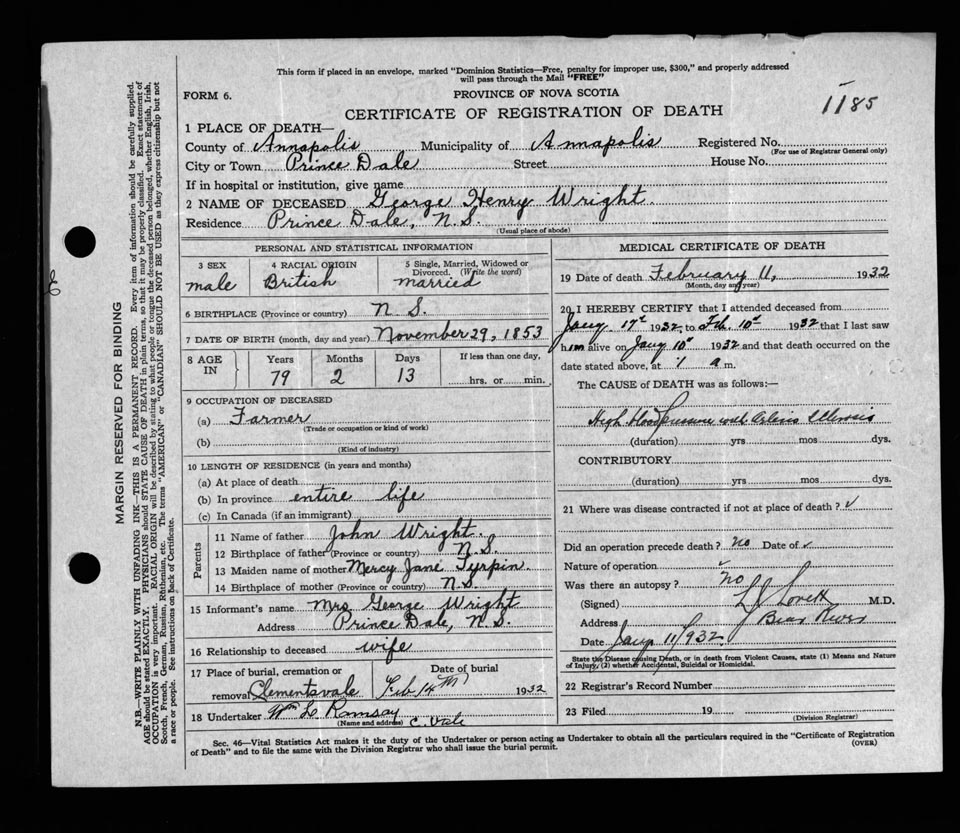 This form if placed in an envelope, marked "Dominion Statistics—Free, penalty for improper use, $300," and properly addressed
will pass through the Mail "FREE"
FORM 6.
PROVINCE OF NOVA SCOTIA
1185
CERTIFICATE OF REGISTRATION OF DEATH
1 PLACE OF DEATH—
County of Annapolis Municipality of Annapolis Registered No.
(For use of Registrar General only)
City or Town Prince Dale Street House No.
If in hospital or institution, give name
2 NAME OF DECEASED George Henry Wright.
Residence Prince Dale, N.S.
(Usual place of abode)
PERSONAL AND STATISTICAL INFORMATION
3 SEX
male
4 RACIAL ORIGIN
British
5 Single, Married, Widowed or
Divorced. (Write the word)
married
6 BIRTHPLACE (Province or country) N.S.
7 DATE OF BIRTH (month, day and year) November 29, 1853
8 AGE
IN
Years
79
Months
2
Days
13
If less than one day,
hrs. or min.
9 OCCUPATION OF DECEASED
(a) Farmer
(Trade or occupation or kind of work)
(b)
(Kind of industry)
10 LENGTH OF RESIDENCE (in years and months)
(a) At place of death
(b) In province entire life
(c) In Canada (if an immigrant)
Parents
11 Name of father John Wright
12 Birthplace of father (Province or country) N.S.
13 Maiden name of mother Mercy Jane Tyrpin
14 Birthplace of mother (Province or country) N.S.
15 Informant's name Mrs. George Wright
Address Prince Dale, N.S.
16 Relationship to deceased wife
17 Place of burial, cremation or
removal Clementsvale
Date of burial
Feb 14th 1932
18 Undertaker Wm L Ramsay C. Vale
(Name and address)
MEDICAL CERTIFICATE OF DEATH
19 Date of death February 11, 1932
(Month, day and year)
20 I HEREBY CERTIFY that I attended deceased from
Jany 17th 1932, to Feb. 10th 1932 that I last saw
him alive on Jany 10th 1932 and that death occurred on the
date stated above, at 1 a m.
The CAUSE of DEATH was as follows:—
High blood pressure with
(duration) yrs mos dys.
CONTRIBUTORY
(duration) yrs mos dys.
21 Where was disease contracted if not at place of death? ✓
Did an operation precede death? no Date of ✓
Nature of operation ✓
Was there an autopsy? no
(Signed) L J Lovett M.D.
Address Bear River
Date Jany 11/932
State the Disease causing Death, or in death from Violent Causes, state (1) Means and Nature
of Injury, (2) whether Accidental, Suicidal or Homicidal.
22 Registrar's Record Number
23 Filed 19
(Division Registrar)
Sec. 46—Vital Statistics Act makes it the duty of the Undertaker or person acting as Undertaker to obtain all the particulars required in the "Certificate of Registration
of Death" and to file the same with the Division Registrar who shall issue the burial permit.
(OVER)
MARGIN RESERVED FOR BINDING
N.B.—WRITE PLAINLY WITH UNFADING INK—THIS IS A PERMANENT RECORD. Every item of information should be carefully supplied.
AGE should be stated EXACTLY. PHYSICIANS should STATE CAUSE OF DEATH in plain terms, so that it may be properly classified. Exact statement of
OCCUPATION is very important. RACIAL ORIGIN will be described by stating to what people or tongue the deceased person belonged, whether English, Irish,
Scotch, French, German, Russian, Ruthenian, etc. The terms "AMERICAN" or "CANADIAN" SHOULD NOT BE USED as they express citizenship but not
a race or people. See instructions on back of Certificate.